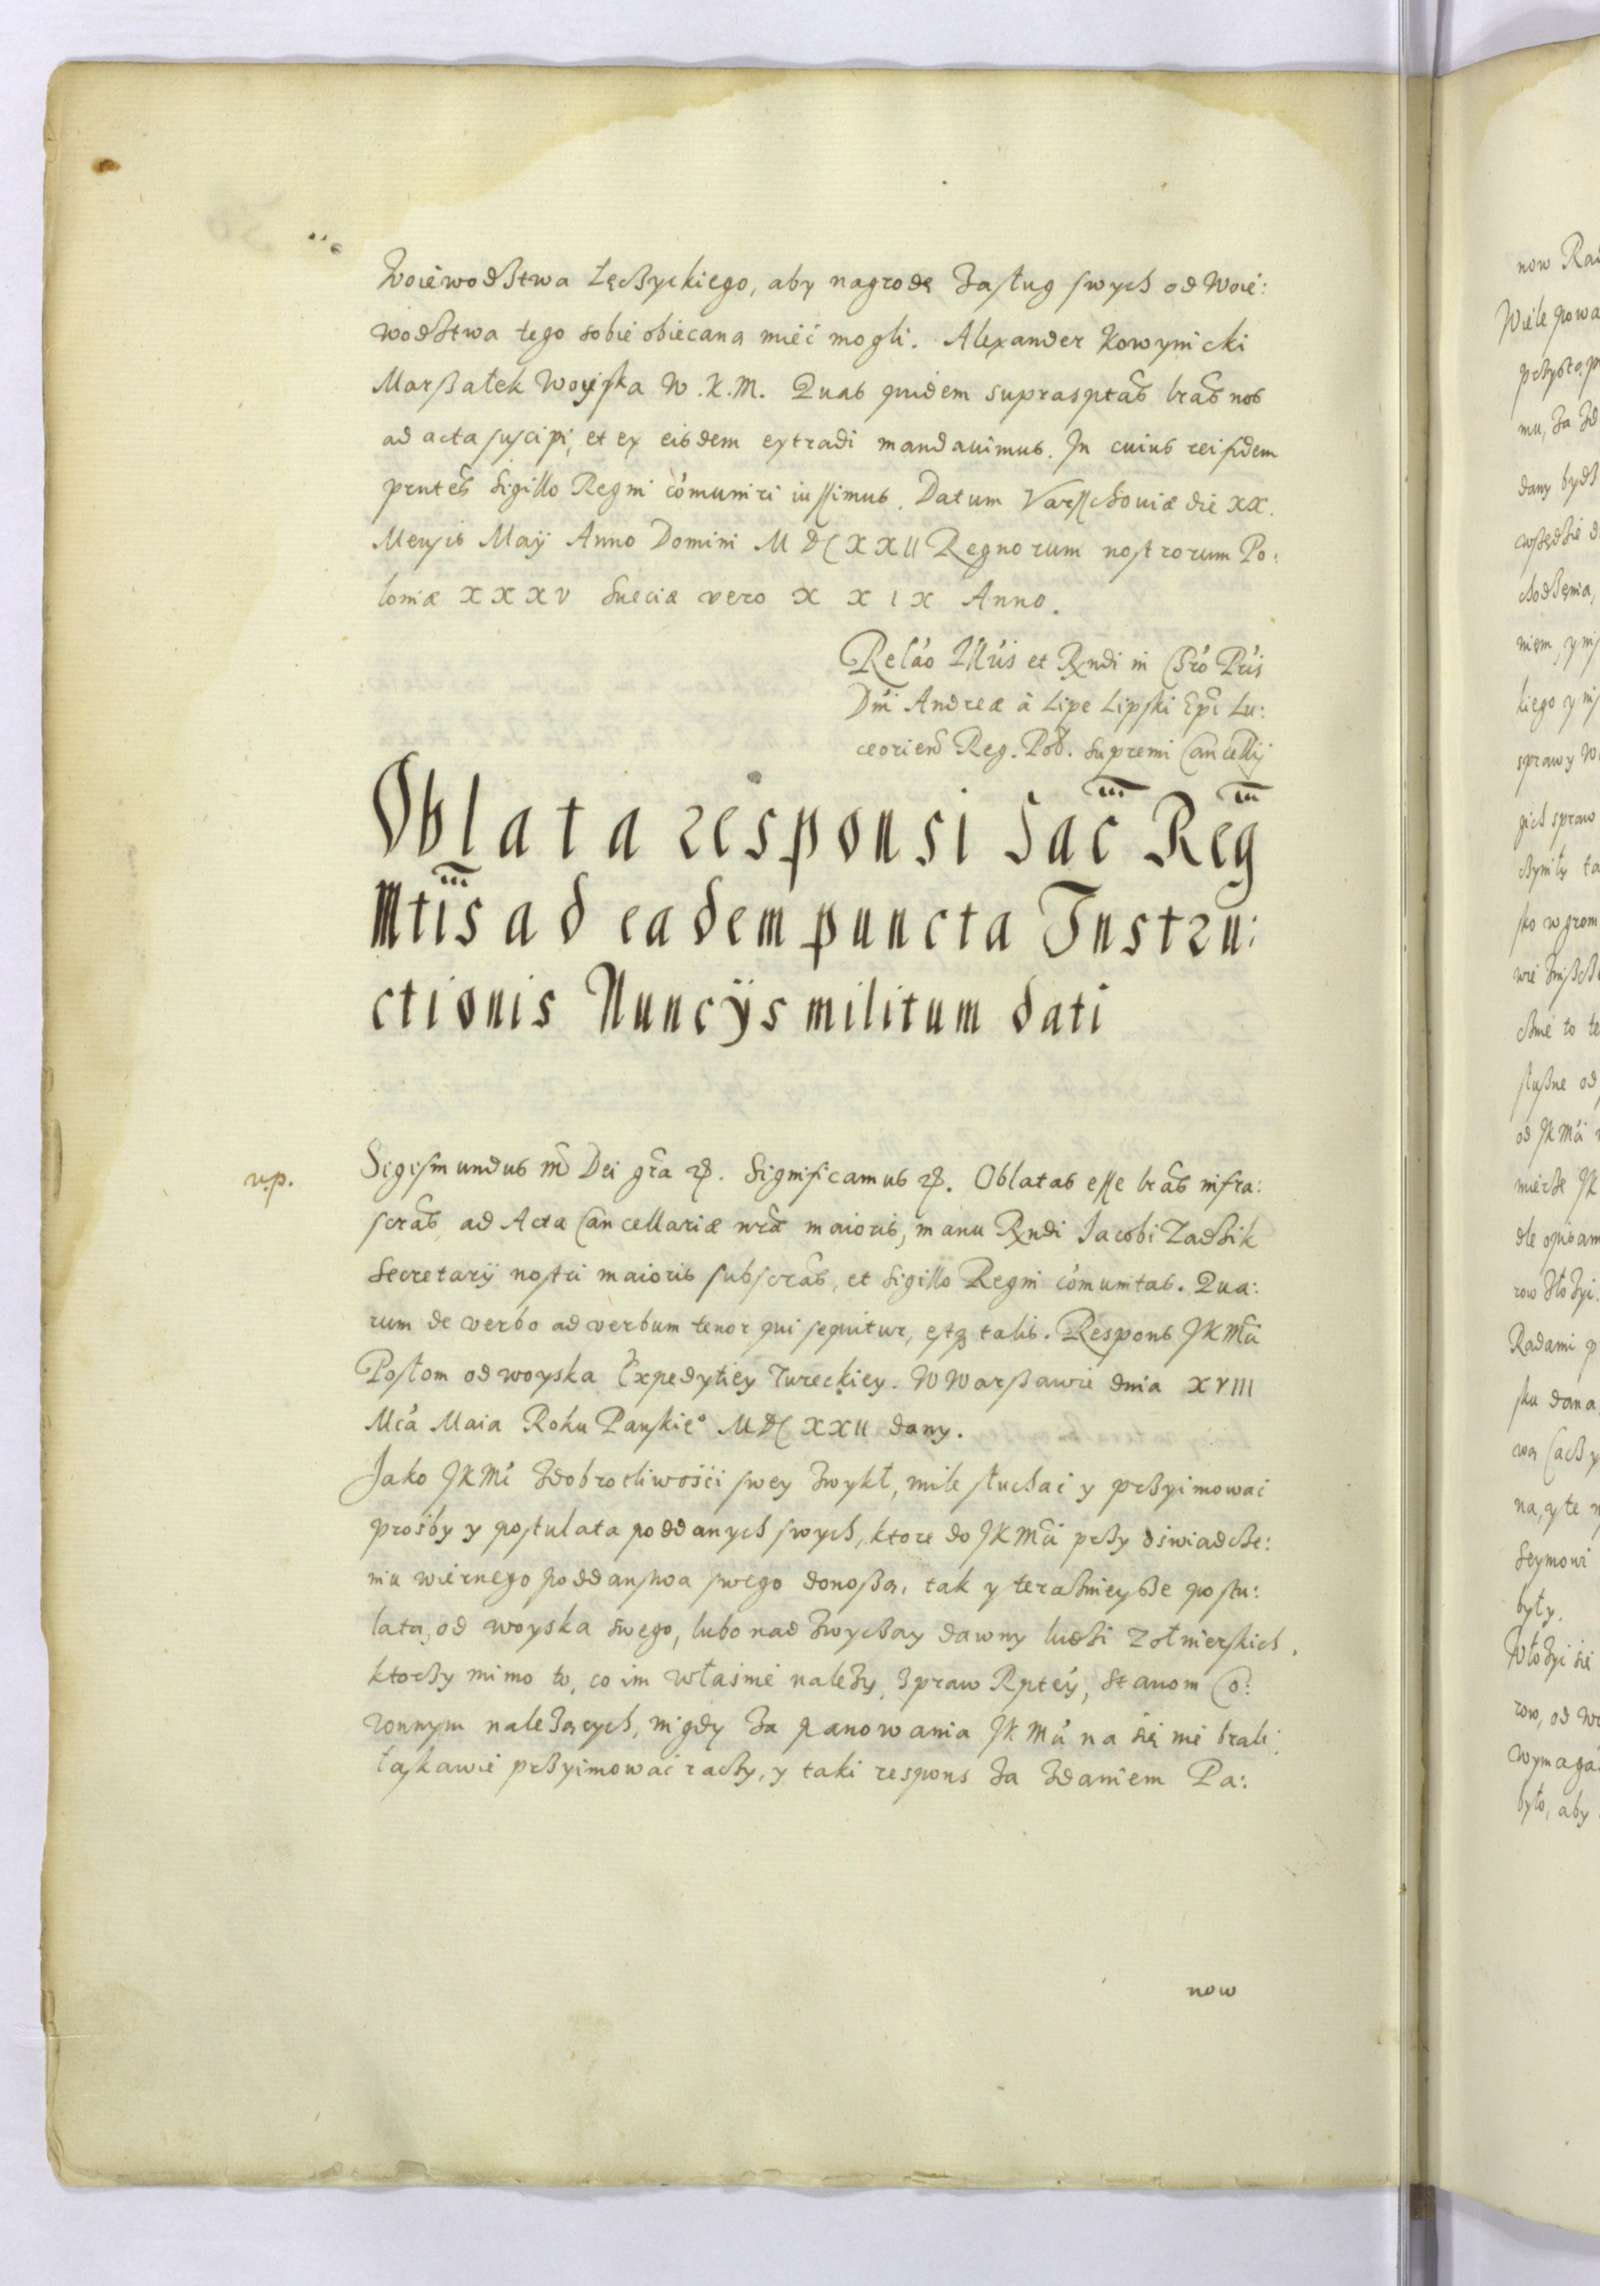 Woiewodztwa Łęczyckiego, aby nagrodę zasług swych od Woie:
wodztwa tego sobie obiecaną mieć mogli. Alexander Kowynicki
Marszałek Woyska W. K. M. Quas quidem suprasptas lras nos
ad acta suscipi, et ex eisdem extradi mandauimus. In cuius rei fidem
pntes Sigillo Regni comuniri iussimus. Datum Varsschouiæ die XX.
Mensis Maÿ Anno Domini MDCXXII Regnorum nostrorum Po:
loniæ XXXV Sueciæ vero XXIX Anno.
Relao Illris et Rndi in Chro Pris
Dni Andreæ à Lipe Lipski Epi Lu:
ceorien Reg. Pol. Supremi Cancellÿ
Oblata responsi Sac Reg
Mtis ad eadem puncta Instru:
ctionis Nuncÿs militum dati
v.p.
Sigismundus III Dei gra etc. Significamus etc. Oblatas esse lras infra:
scras ad Acta Cancellariæ nræ maioris, manu Rndi Iacobi Zadzik
Secretarÿ nostri maioris subscras, et Sigillo Regni comunitas. Qua:
rum de verbo ad verbum tenor qui sequitur, estq talis. Respons JKMci
Posłom od woyska Expedytiey Tureckiey. W Warszawie dnia XVIII
Mca Maia Roku Panskieo MDCXXII dany.
Jako JKMć z dobrotliwości swey zwykł, mile słuchać y przyimować
prośby y postulata poddanych swych, ktore do JKMci przy oświadcze:
niu wiernego poddanstwa swego donoszą, tak y teraznieysze postu:
lata, od woyska swego, lubo nad zwyczay dawny ludzi Zołnierskich,
ktorzy mimo to, co im własnie należy, spraw Rptey, Stanom Co:
ronnym należących, nigdy za panowania JKMci na się nie brali,
łaskawie przyimować raczy, y taki respons za zdaniem Pa:
now